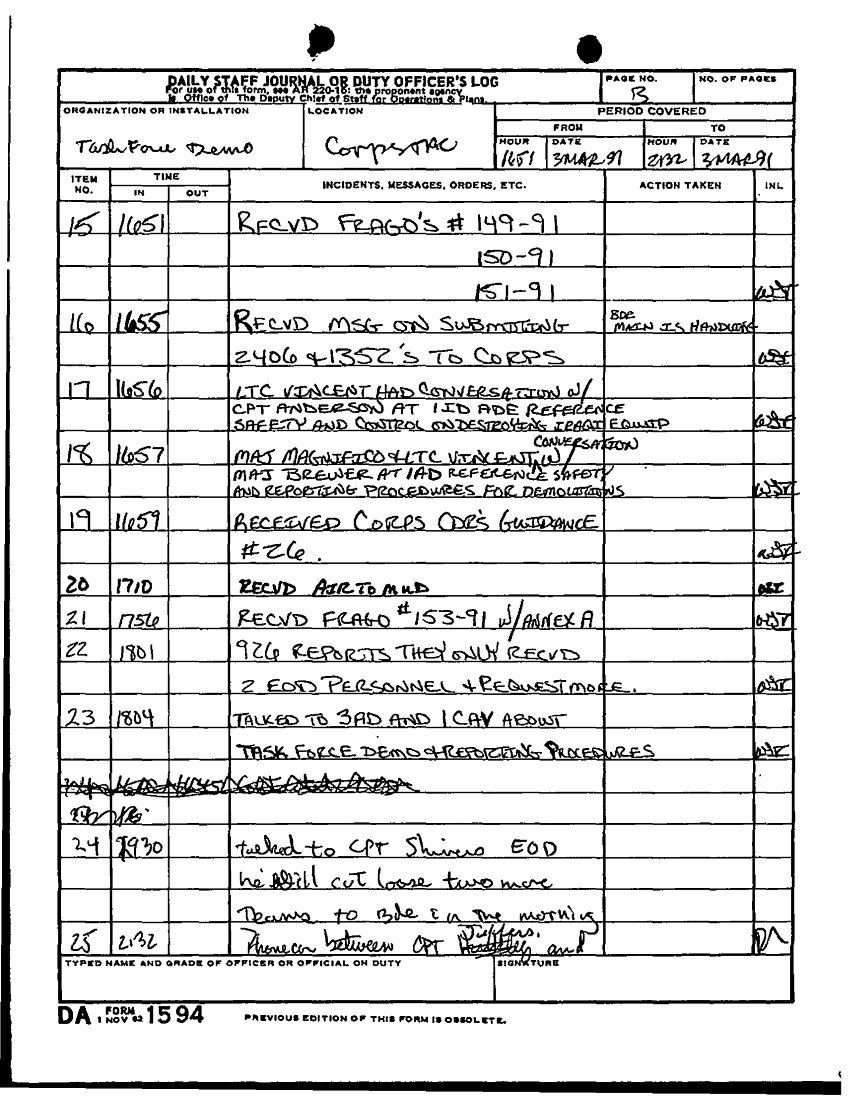 DAILY STAFF JOURNAL OR DUTY OFFICER'S LOG
For use of this form, see AR 220-15; the proponent agency
is Office of The Deputy Chief of Staff for Operations & Plans.
PAGE NO.
B
NO. OF PAGES
ORGANIZATION OR INSTALLATION
Task Force Demo
LOCATION
Corps TAC
PERIOD COVERED
FROM TO
HOUR DATE HOUR DATE
1651 3 MAR 91 2132 3 MAR 91
ITEM NO. TIME IN OUT INCIDENTS, MESSAGES, ORDERS, ETC. ACTION TAKEN INL
15 1651 RECVD FRAGO'S # 149-91
150-91
151-91
16 1655 RECVD MSG ON SUBMITTING BDE MAIN IS HANDLING
2406 & 1352'S TO CORPS
17 1656 LTC VINCENT HAD CONVERSATION W/
CPT ANDERSON AT 1ID ADE REFERENCE
SAFETY AND CONTROL ON DESTROYING IRAQI EQUIP
18 1657 MAJ MAGNIFICO & LTC VINCENT CONVERSATION W/
MAJ BREWER AT 1AD REFERENCE SAFETY
AND REPORTING PROCEDURES FOR DEMOLITIONS
19 1659 RECEIVED CORPS CDR'S GUIDANCE
#26.
20 1710 RECVD AIR TO MUD
21 1756 RECVD FRAGO #153-91 W/ANNEX A
22 1801 926 REPORTS THEY ONLY RECVD
2 EOD PERSONNEL & REQUEST MORE.
23 1804 TALKED TO 3AD AND 1 CAV ABOUT
TASK FORCE DEMO & REPORTING PROCEDURES
24 1930 talked to CPT Shivers EOD
he'll cut loose two more
Teams to Bde in the morning
25 2132 Phonecon between CPT Jeffers. and
TYPED NAME AND GRADE OF OFFICER OR OFFICIAL ON DUTY SIGNATURE
DA FORM 1 NOV 62 1594 PREVIOUS EDITION OF THIS FORM IS OBSOLETE.